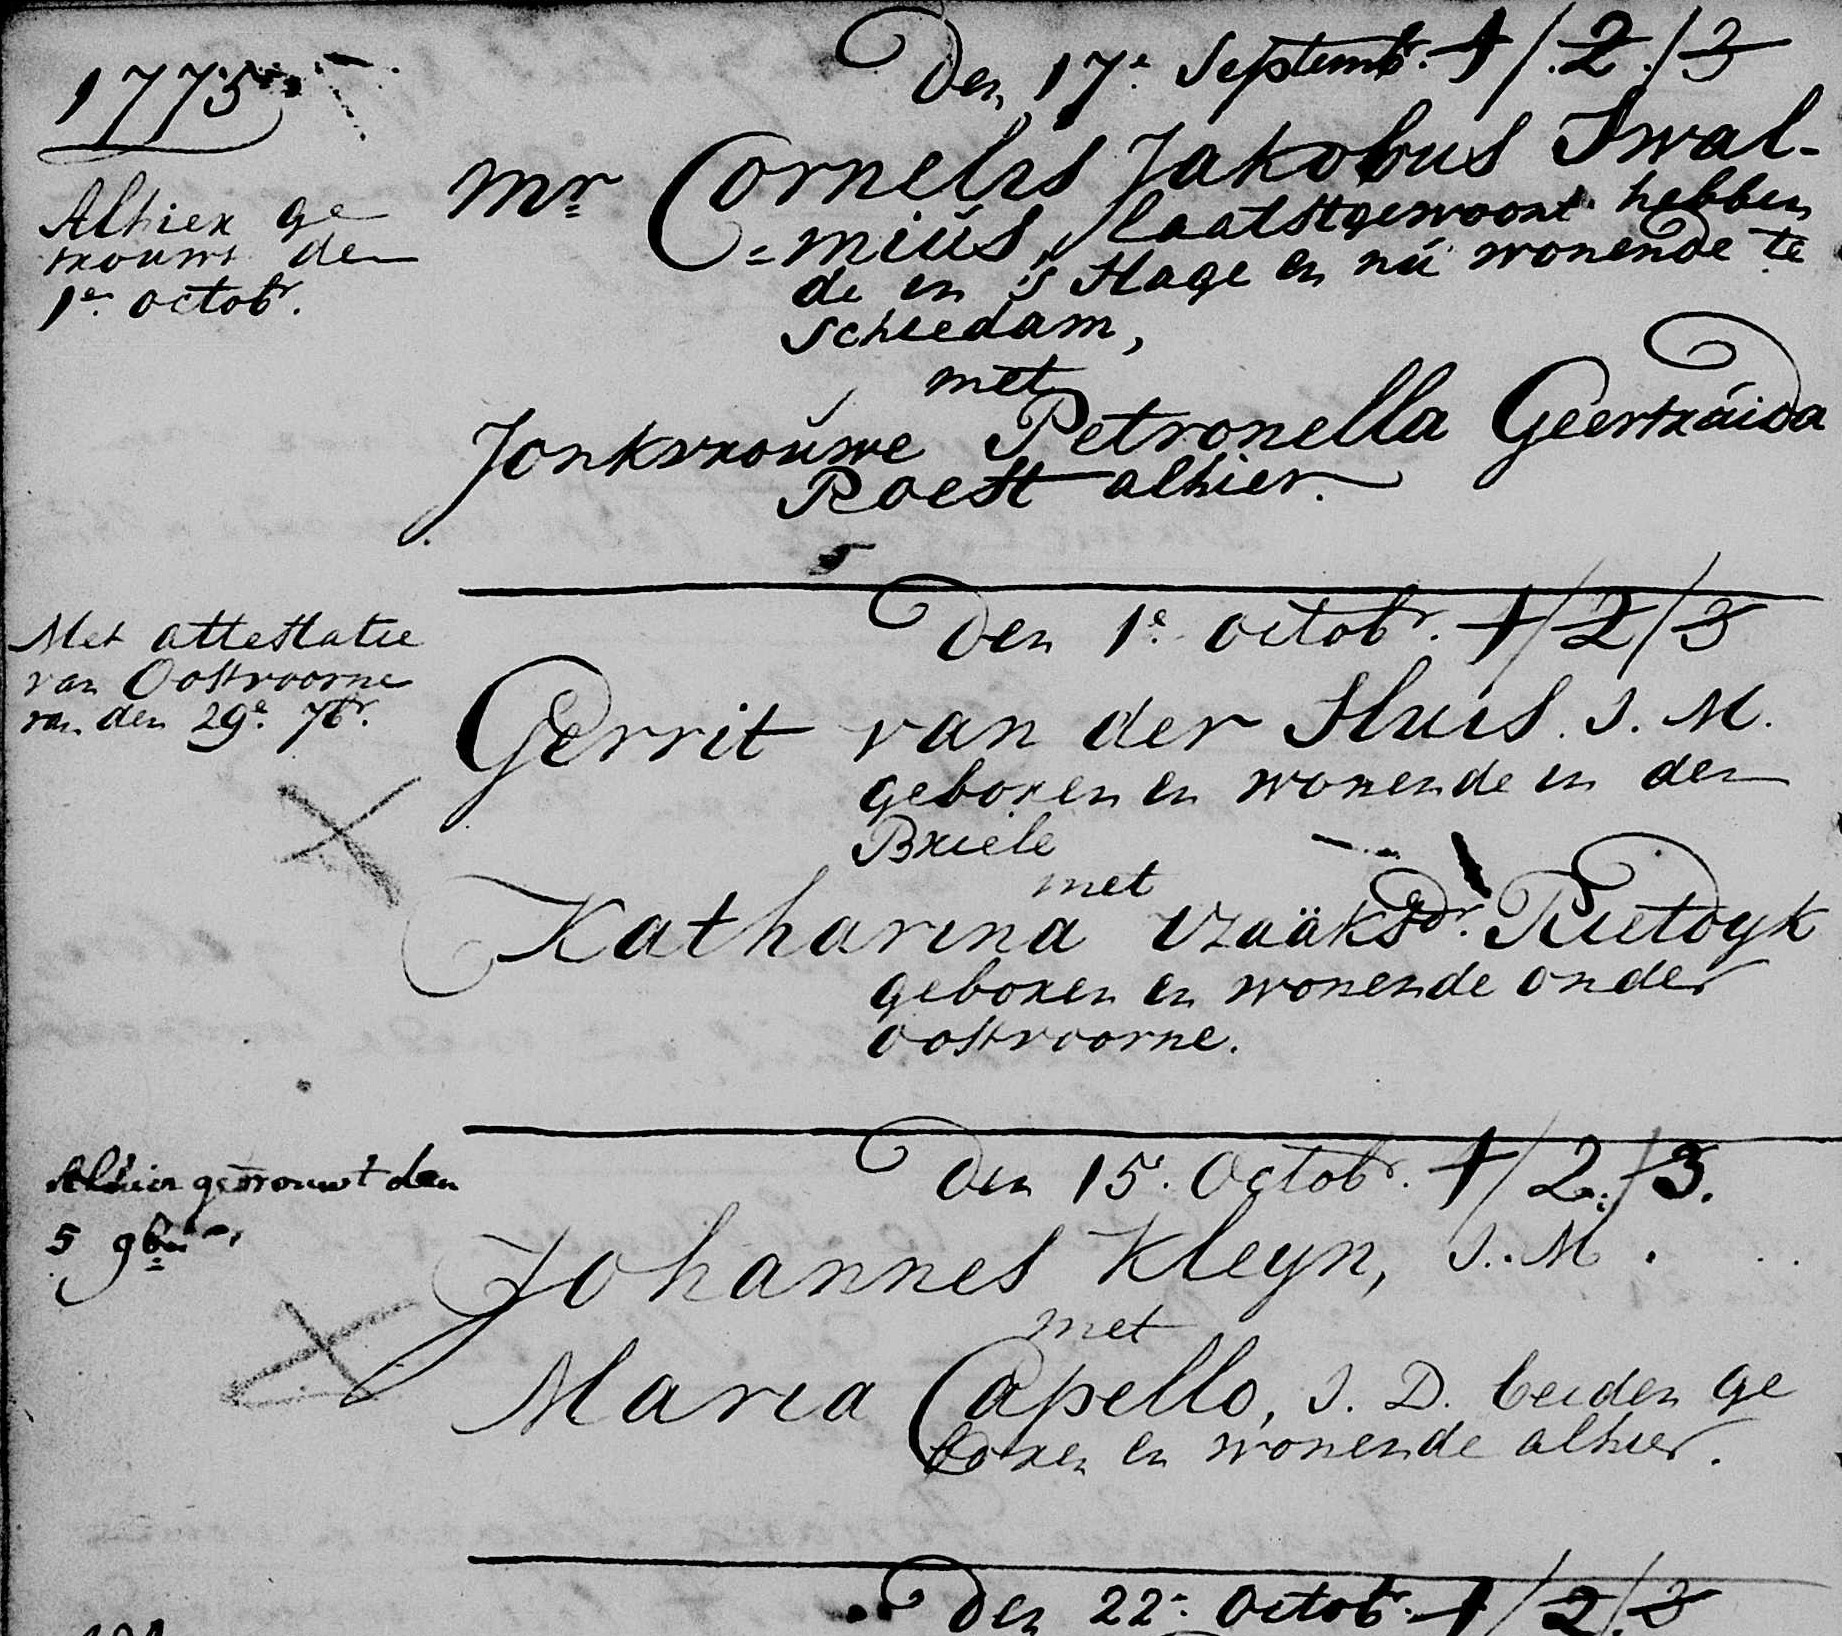 1775
Den 17e Septembr. 1/.2./3
Alhier ge
trouwt den
1en octobr.
Mr Cornelis Jakobus Swal-
=mius, laatstgewoont hebben
de in 's Hage en nu wonende te
Schiedam,
met
Jonkvrouwe Petronella Geertruida
Roest alhier.
Den 1e octobr. 1/2/3
Met attestatie
van Oostvoorne
van den 29e 7br.
Gerrit van der Sluis. J. M.
geboren en wonende in den
Briele
met
Katharina Yzaäksdr. Rietdyk
geboren en wonende onder
oostvoorne.
Den 15e. Octobr. 1/2./3.
Alhier getrouwt den
5 9br
Johannes Kleyn, J. M.
met
Maria Capello, J. D. beiden ge
boren en wonende alhier.
Den 22e. Octobr. 1/2/3